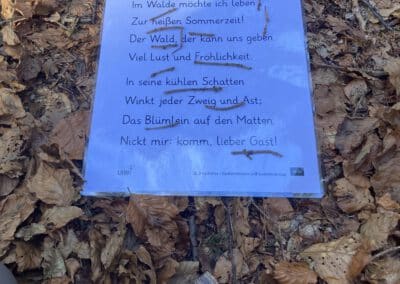 Im Walde möchte ich leben
Zur heißen Sommerzeit!
Der Wald, der kann uns geben
Viel Lust und Fröhlichkeit.
In seine kühlen Schatten
Winkt jeder Zweig und Ast;
Das Blümlein auf den Matten
Nickt mir: komm, lieber Gast!